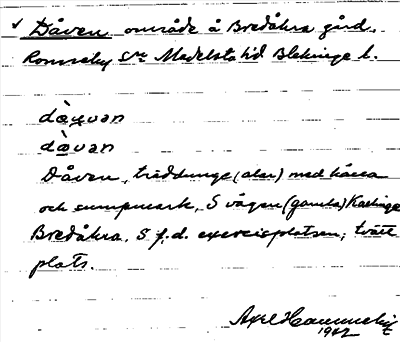 ✓ Dåven område å Bredåkra gård.
Ronneby Sn Medelsta hd Blekinge l.
dæ̀ųvan
dàvan
Dåven, träddunge (alar) med kärra
och sumpmark, S vägen (gamla) Kallinge
Bredåkra. S f.d. exercisplatsen; tvätt
plats.
Axel
1942